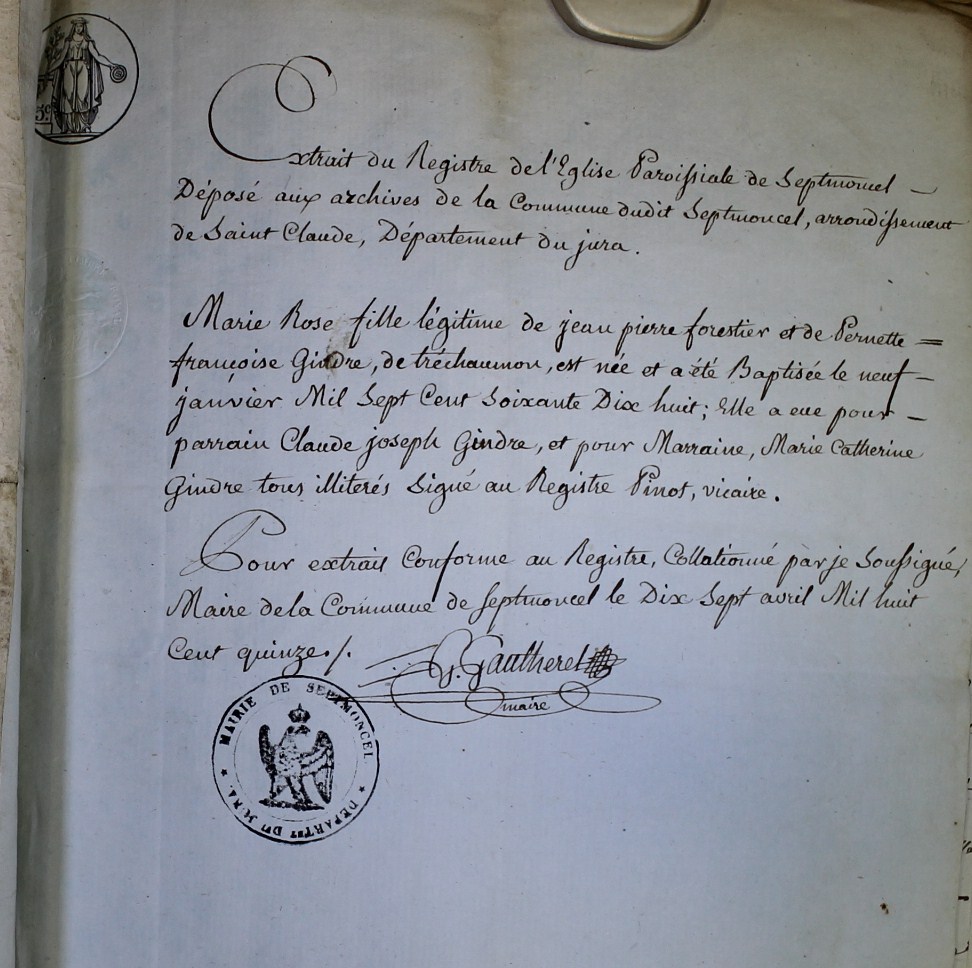 Extrait du Registre de l'Eglise Paroissiale de Septmoncel
Déposé aux archives de la Commune dudit Septmoncel, arrondissement
de Saint Claude, Département du jura.
Marie Rose fille légitime de jean pierre forestier et de Pernette =
françoise Gindre, de tréchaumon, est née et a été Baptisée le neuf –
janvier Mil Sept Cent Soixante Dix huit; Elle a eue pour –
parrain Claude joseph Gindre, et pour Marraine, Marie Catherine
Gindre tous illiterés Signé au Registre Pinot, vicaire.
Pour extrais Conforme au Registre, Collationné par je Soussigné,
Maire de la Commune de Septmoncel le Dix Sept avril Mil huit
Cent quinze ./.
G. Gautheret
maire
MAIRIE DE SEPTMONCEL
★ DEPARTt DU JURA. ★